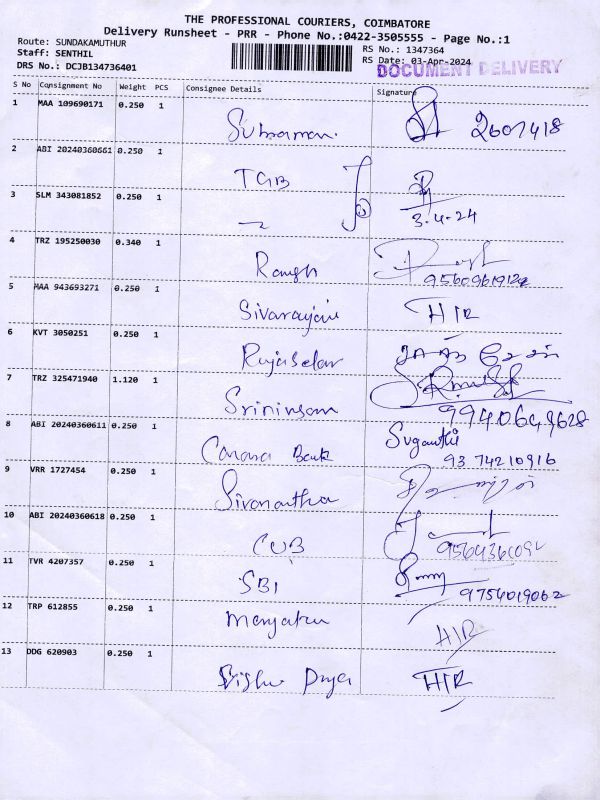 THE PROFESSIONAL COURIERS, COIMBATORE
Delivery Runsheet - PRR - Phone No.:0422-3505555 - Page No.:1
Route: SUNDAKAMUTHUR
RS No.: 1347364
Staff: SENTHIL
RS Date: 03-Apr-2024
DRS No.: DCJB134736401
DOCUMENT DELIVERY
S No Consignment No Weight PCS Consignee Details Signature
1 MAA 109690171 0.250 1
2601418
2 ABI 20240360661 0.250 1
TGB
3 SLM 343081852 0.250 1
3.4.24
4 TRZ 195250030 0.340 1
Ramesh
5 MAA 943693271 0.250 1
H/R
6 KVT 3050251 0.250 1
7 TRZ 325471940 1.120 1
9940649628
8 ABI 20240360611 0.250 1
Suganthi
Canara Bank
93 74210916
9 VRR 1727454 0.250 1
10 ABI 20240360618 0.250 1
CUB
11 TVR 4207357 0.250 1
SBI
9754019062
12 TRP 612855 0.250 1
H/R
13 DDG 620903 0.250 1
H/R